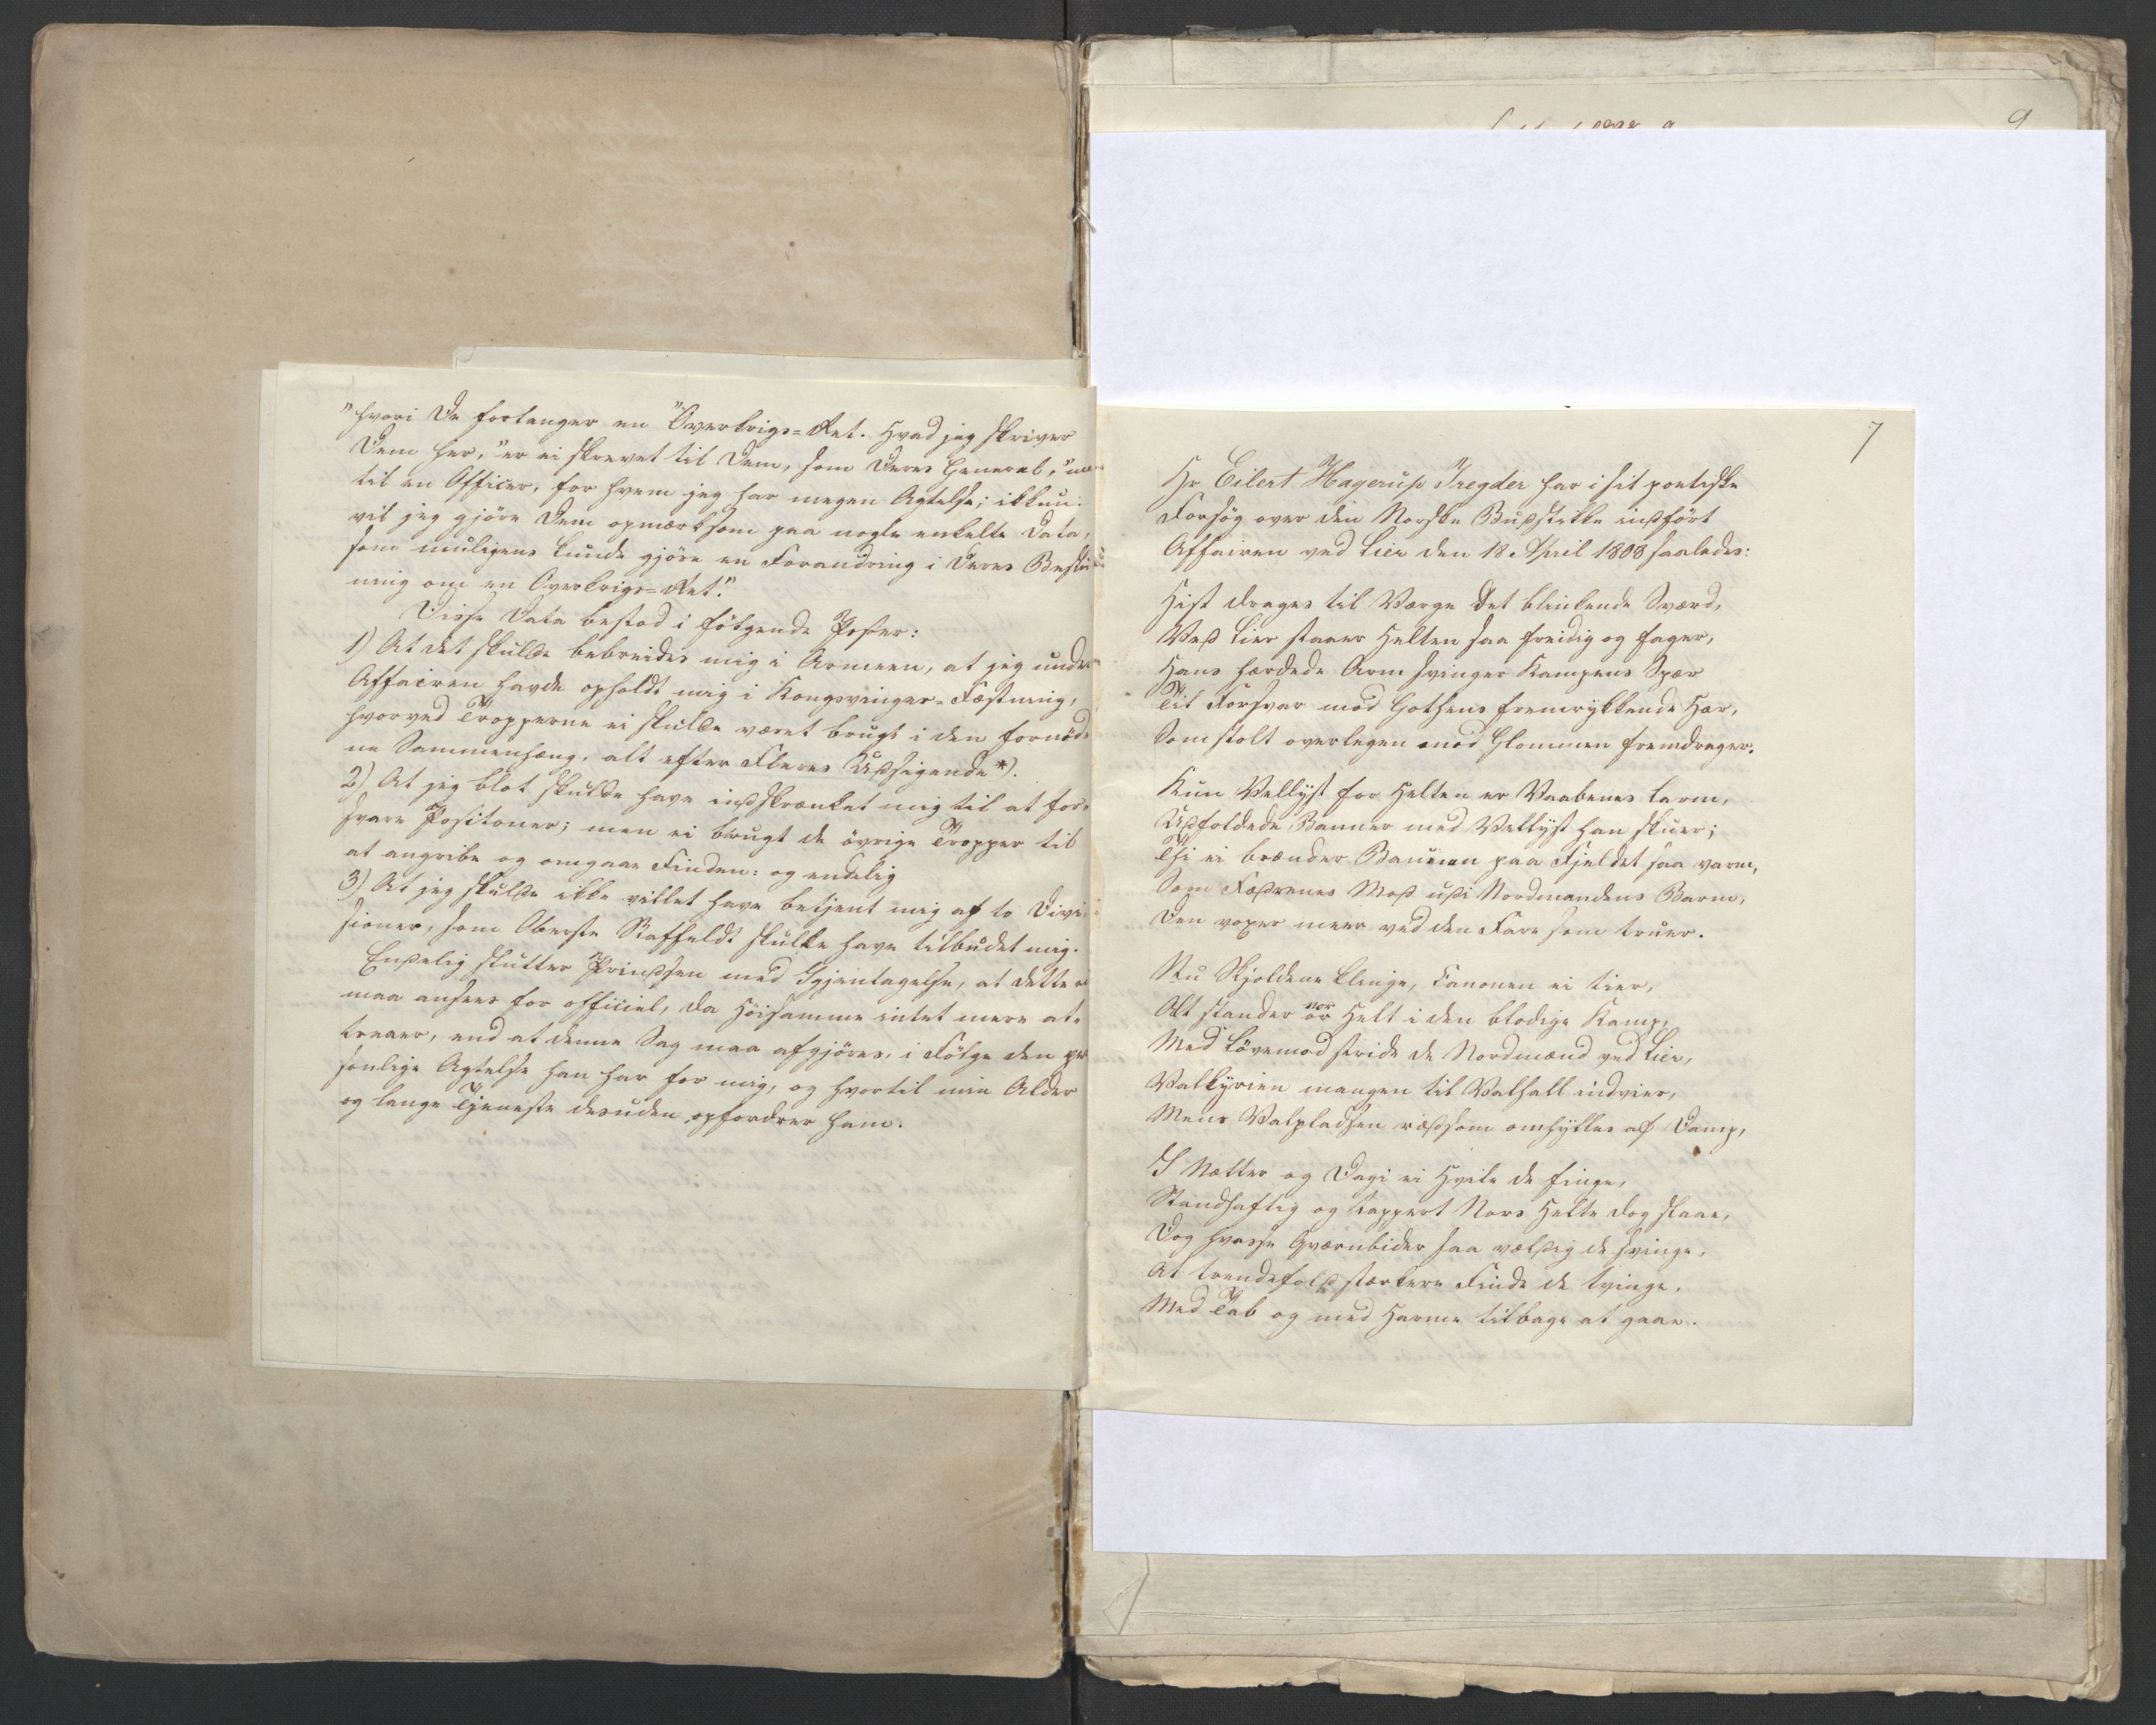 "hvori De forlanger en "Overkrigs=Ret. Hvad jeg skriver
Dem her, "er ei skrevet til Dem, som Deres General,
til en Officier, for hvem jeg har megen Agtelse; ikkun
vil jeg gjöre Dem opmærksom paa nogle enkelte Data,
som muligens kunde gjöre en Forandring i Deres Bestem
ning om en Overkrigs=Ret."
Disse Data bestod i fölgende Poster:
1) At det skulde bebreides mig i Armeen, at jeg under
Affairen havde opholdt mig i Kongsvinger=Fæstning,
hvorved Tropperne ei skulde været brugt i den fornöd
ne Sammenhæng, alt efter Fleres Udsigende *).
2) At jeg blot skulde have indskrænket mig til at for=
svare Positoner; men ei brugt de övrige Tropper til
at angribe og omgaae Finden: og endelig
3) At jeg skulde ikke villet have betjent mig af to Divi
sioner, som Oberste Staffeldt skulde have tilbudet mig.
Endelig slutter Prindsen med Igjentagelse, at dette ei
maa ansees for officiel, da Höisamme intet mere at=
traaer, end at denne Sag maa afgjöres, i Fölge den per
sonlige Agtelse han har for mig, og hvortil min Alder
og lange Tjeneste desuden opfordrer ham.
9
7
Hr Eilert Hagerup Tregder har i sit poetiske
Forsög over den Norske Budstikke indfört
Affairen ved Lier den 18 April 1808 saaledes:
Hist drages til Værge det blinkende Sværd,
Ved Lier staaer Helten saa freidig og fager,
Hans hærdede Arm svinger Kampens Spær
Til Forsvar mod Gothens fremrykkende Hær,
Som stolt overlegen mod Glommen fremdrager.
Kun Vellyst for Helten er Vaabenes Larm,
Udfoldede Banner med Vellyst han skuer;
Thi ei brænder Baunen paa Fjeldet saa varm,
Som Fædrenes Mod udi Nordmandens Barm,
Den voxer meer ved den Fare som truer.
Nu Skjoldene klinge, Kanonen ei tier,
Alt stander vor Helt i den blodige Kamp,
Med Lövemod stride de Nordmænd ved Lier,
Valkyrien mangen til Valhall indvier,
Mens Valpladsen rædsom omhylles af Damp,
I Nætter og Dage ei Hvile de finge,
Standhaftig og tappert Nors Helte dog staae,
Dog hvasse Qværnbider saa vældig de svinge,
At trendefold stærkere Finde de tvinge,
Med Tab og med Harme tilbage at gaae.